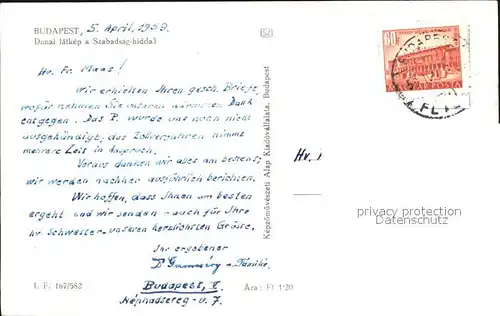 BUDAPEST, 5. April, 1959.
Dunai látkép a Szabadság-híddal
Hv. Fr. Maas!
Wir erhielten Ihren gesch. Briefe,
wofür nehmen Sie unseren wärmsten Dank
entgegen. Das P. wurde uns noch nicht
ausgekündigt, das Zollverfahren nimmt
mehrere Zeit in Anspruch.
Voraus danken wir alles am bestens,
wir werden nachher ausführlich berichten.
Wir hoffen, dass Ihnen am besten
ergeht und wir senden - auch für Ihre
hv. Schwester - unseren herzlichsten Grüsse,
Ihr ergebener
+ Familie
Budapest, V.
Néphadsereg-u. 7.
I. F. 167/582
Ára: Ft 1·20
Képzőművészeti Alap Kiadóvállalata, Budapest
60
MAGYAR POSTA
BUDAPEST
Hv.
privacy protection
Datenschutz